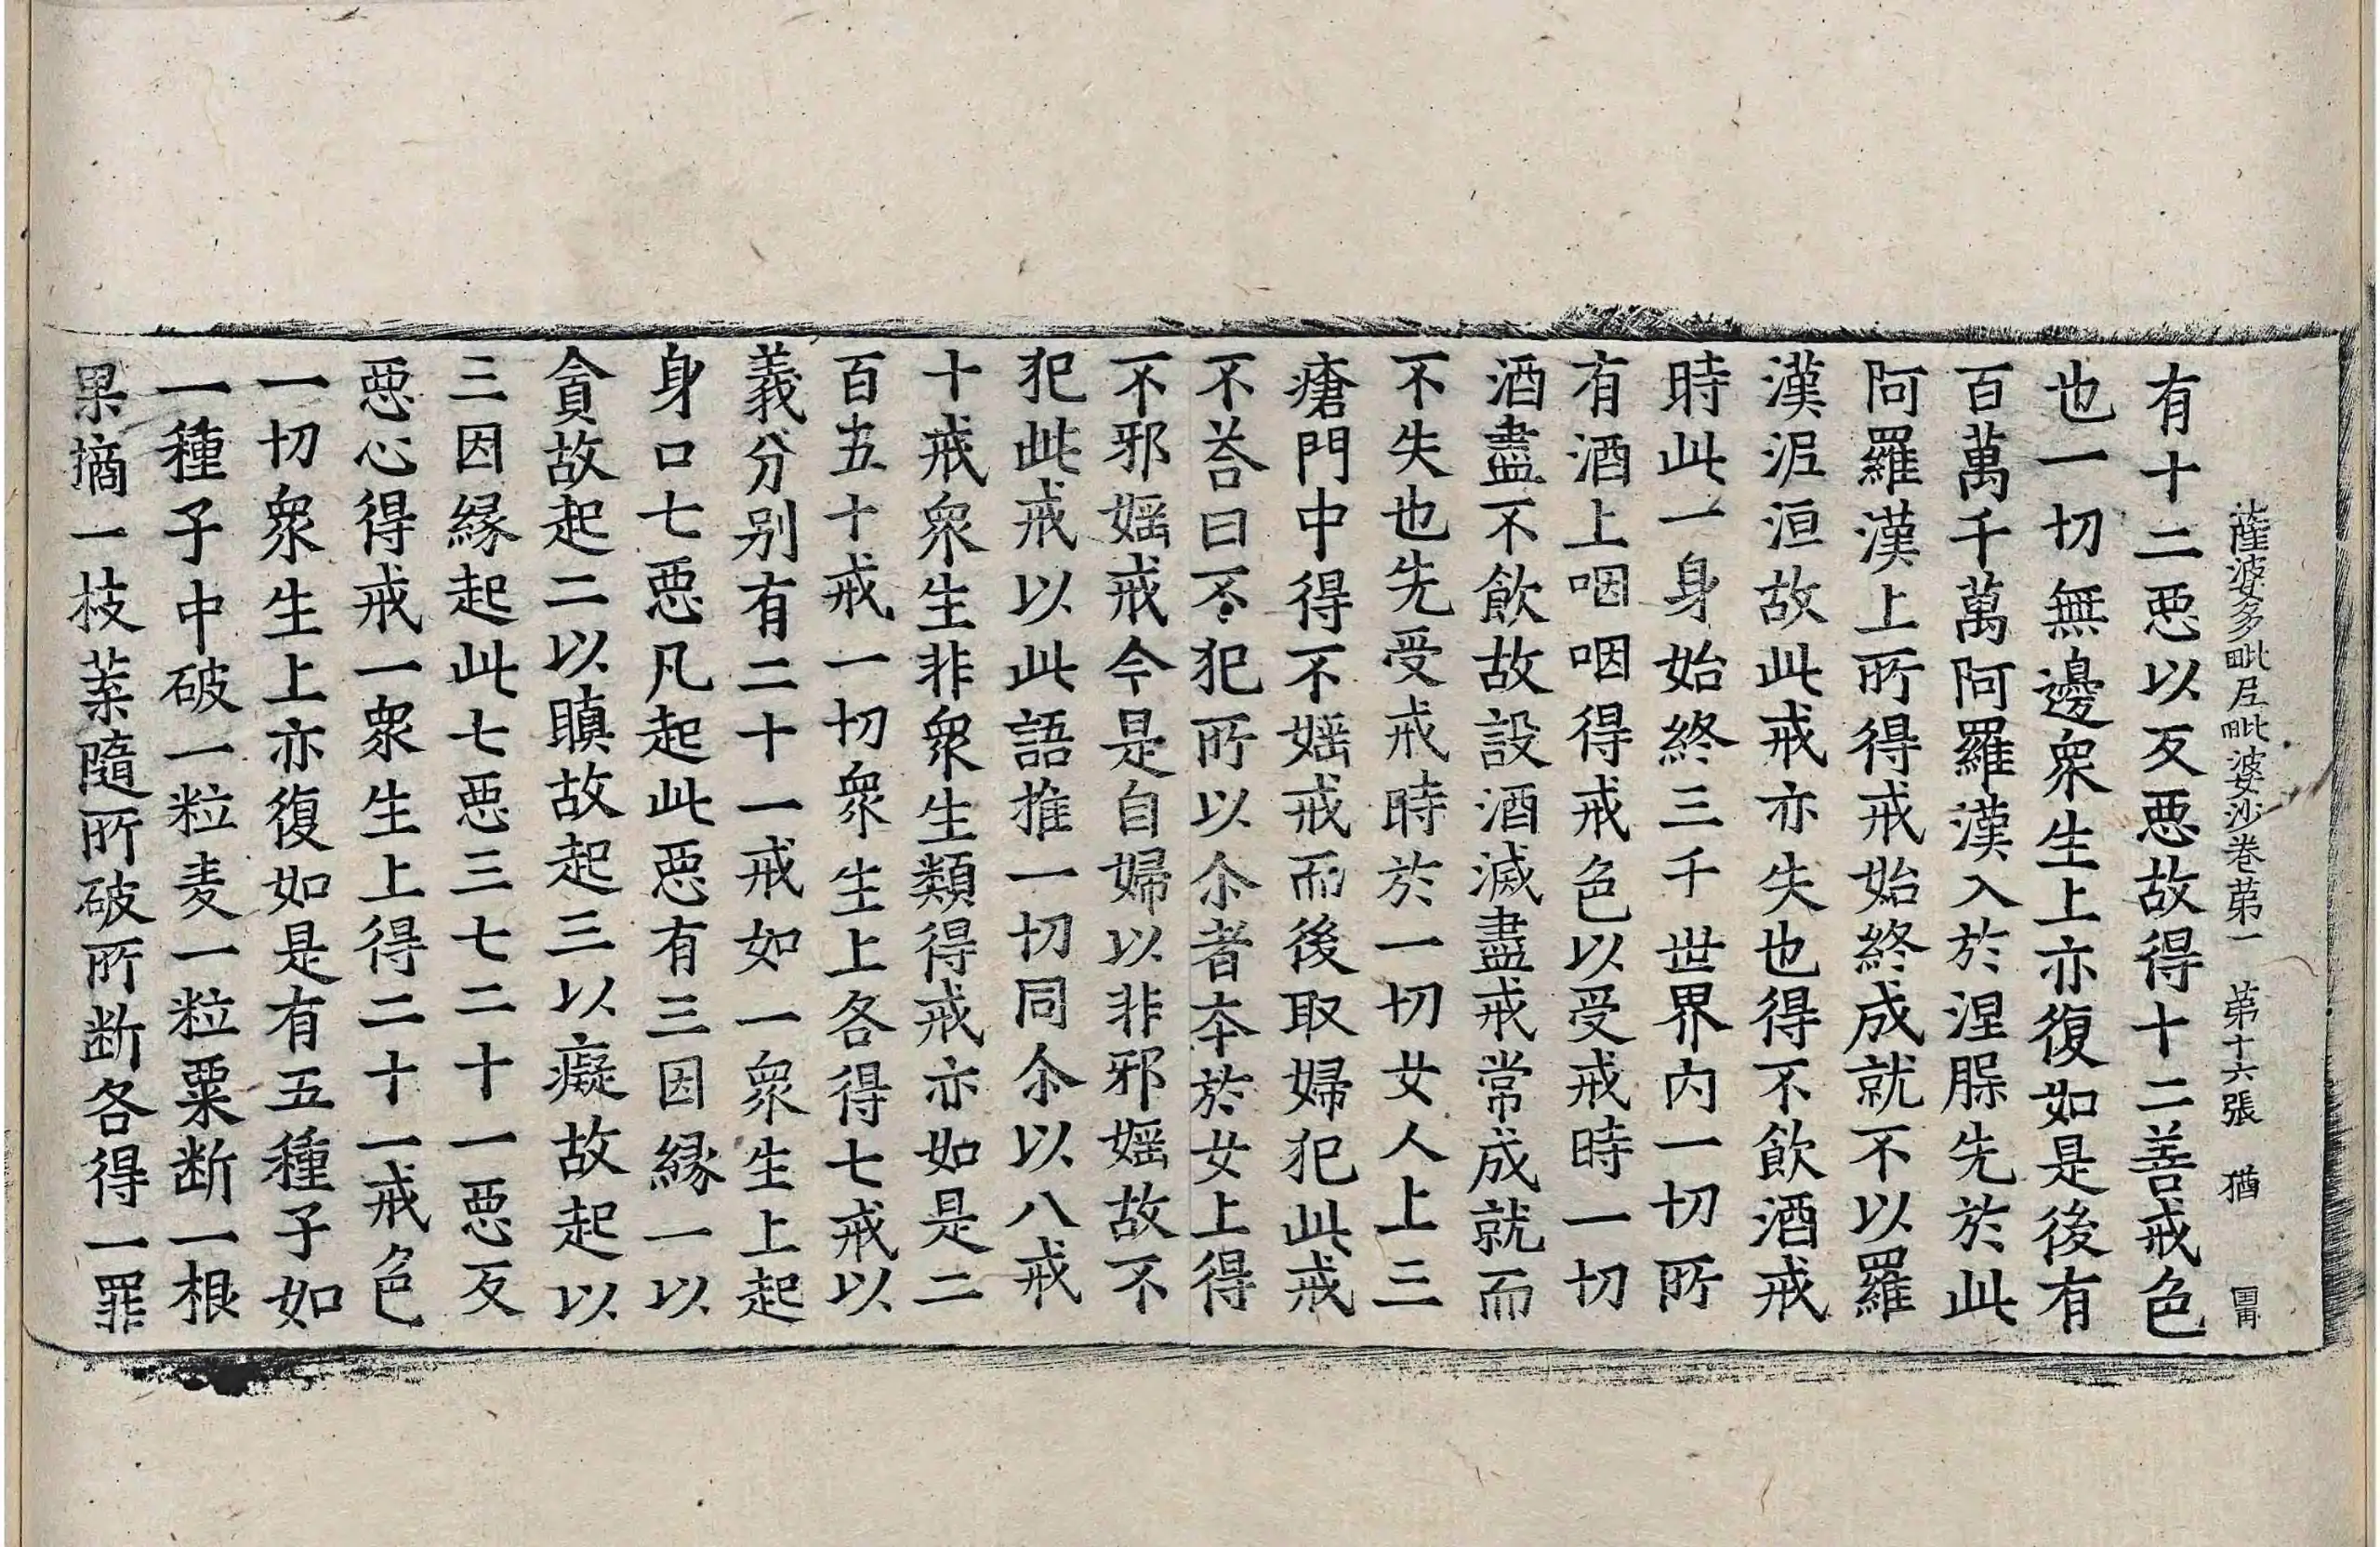 薩婆多毗尼毗婆沙卷第一　第十六張　猶
有十二惡以反惡故得十二善戒色
也一切無邊衆生上亦復如是後有
百萬千萬阿羅漢入於涅脲先於此
阿羅漢上所得戒始終成就不以羅
漢泥洹故此戒亦失也得不飲酒戒
時此一身始終三千世界内一切所
有酒上咽咽得戒色以受戒時一切
酒盡不飲故設酒滅盡戒常成就而
不失也先受戒時於一切女人上三
瘡門中得不婬戒而後取婦犯此戒
不荅曰不犯所以尒者本於女上得
不邪婬戒今是自婦以非邪婬故不
犯此戒以此語推一切同尒以八戒
十戒衆生非衆生類得戒亦如是二
百五十戒一切衆生上各得七戒以
義分别有二十一戒如一衆生上起
身口七惡凡起此惡有三因縁一以
貪故起二以瞋故起三以癡故起以
三因縁起此七惡三七二十一惡反
惡心得戒一衆生上得二十一戒色
一切衆生上亦復如是有五種子如
一種子中破一粒麦一粒粟断一根
果摘一枝葉隨所破所断各得一罪